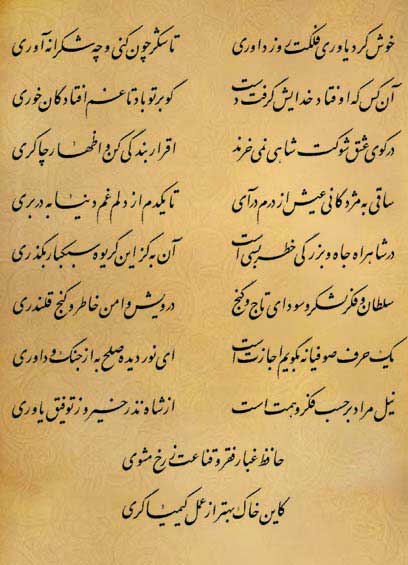 خوش کرد یاوری فلکت روز داوری تا شکر چون کنی و چه شکرانه آوری
آن کس که اوفتاد خدایش گرفت دست گو بر تو باد تا غم افتادگان خوری
در کوی عشق شوکت شاهی نمی‌خرند اقرار بندگی کن و اظهار چاکری
ساقی به مژدگانی عیش از درم درآی تا یکدم از دلم غم دنیا به در بری
در شاهراه جاه و بزرگی خطر بسی است آن به کز این گریوه سبکبار بگذری
سلطان و فکر لشکر و سودای تاج و گنج درویش و امن خاطر و کنج قلندری
یک حرف صوفیانه بگویم اجازت است ای نور دیده صلح به از جنگ و داوری
نیل مراد بر حسب فکر و همت است از شاه نذر خیر و ز توفیق یاوری
حافظ غبار فقر و قناعت ز رخ مشوی
کاین خاک بهتر از عمل کیمیاگری